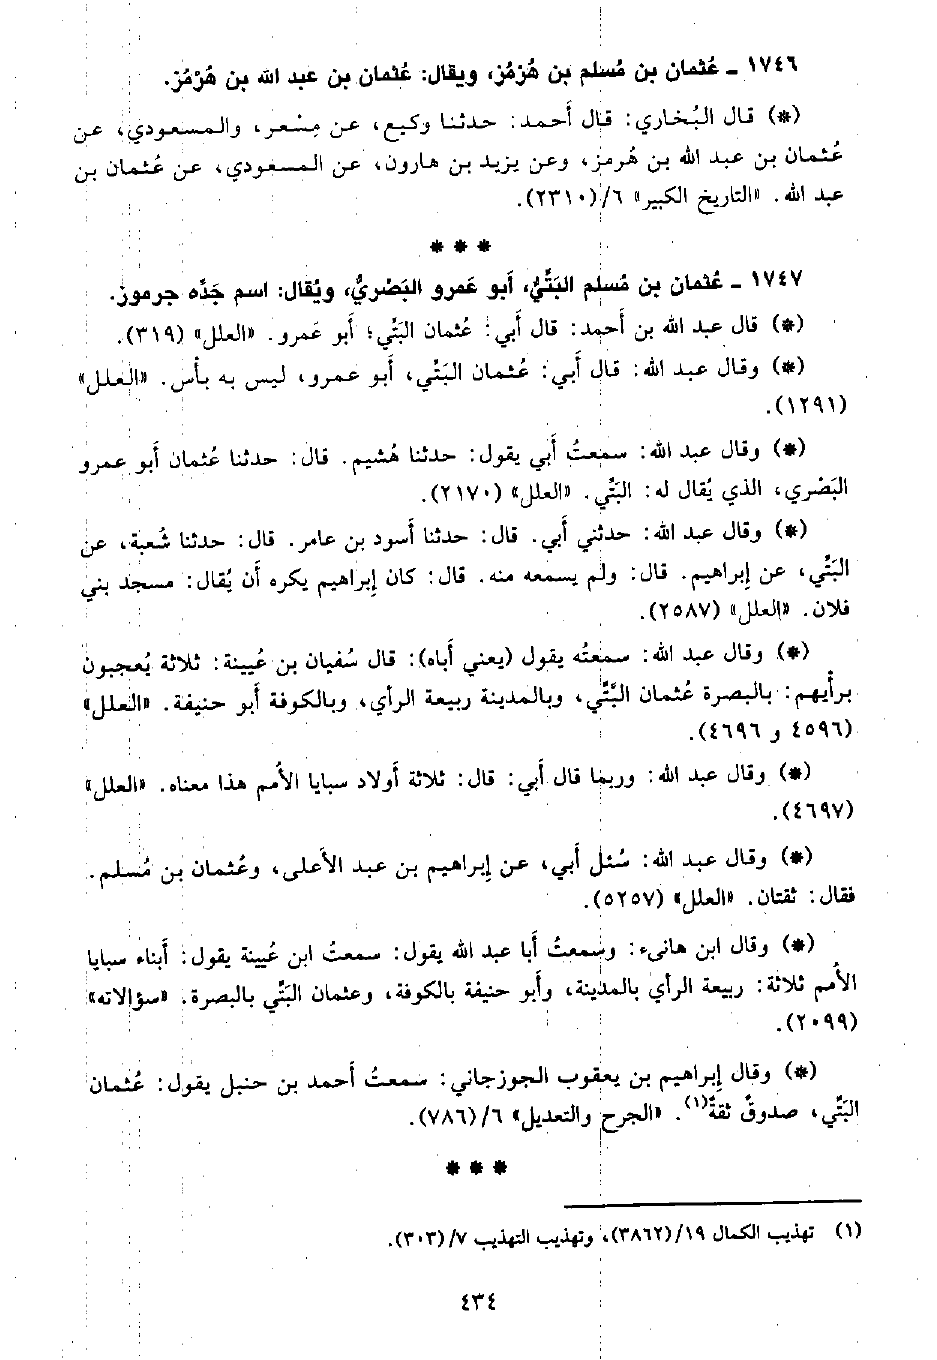 ١٧٤٦ ـ عُثمان بن مُسلم بن هُرْمُز، ويقال: عُثمان بن عبد الله بن هُرْمُز.
(*) قال البُخاري: قال أَحمد: حدثنا وكيع، عن مِسْعر، والمسعودي، عن
عُثمان بن عبد الله بن هُرمز، وعن يزيد بن هارون، عن المسعودي، عن عُثمان بن
عبد الله. «التاريخ الكبير» ٦/(٢٣١٠).
* * *
١٧٤٧ ـ عُثمان بن مُسلم البَتِّيُّ، أَبو عَمرو البَصْريُّ، ويُقال: اسم جَدِّه جرموز.
(*) قال عبد الله بن أَحمد: قال أَبي: عُثمان البَتِّي؛ أَبو عَمرو. «العلل» (٣١٩).
(*) وقال عبد الله: قال أَبي: عُثمان البَتِّي، أَبو عمرو، ليس به بأْس. «العلل»
(١٢٩١).
(*) وقال عبد الله: سمعتُ أَبي يقول: حدثنا هُشيم. قال: حدثنا عُثمان أَبو عمرو
البَصْري، الذي يُقال له: البَتِّي. «العلل» (٢١٧٠).
(*) وقال عبد الله: حدثني أَبي. قال: حدثنا أَسود بن عامر. قال: حدثنا شُعبة، عن
البَتِّي، عن إِبراهيم. قال: ولم يسمعه منه. قال: كان إِبراهيم يكره أَن يُقال: مسجد بني
فلان. «العلل» (٢٥٨٧).
(*) وقال عبد الله: سمعتُه يقول (يعني أَباه): قال سُفيان بن عُيينة: ثلاثة يُعجبون
برأْيهم: بالبصرة عُثمان البَتِّي، وبالمدينة ربيعة الرأي، وبالكوفة أَبو حنيفة. «العلل»
(٤٥٩٦ و ٤٦٩٦).
(*) وقال عبد الله: وربما قال أَبي: قال: ثلاثة أَولاد سبايا الأُمم هذا معناه. «العلل»
(٤٦٩٧).
(*) وقال عبد الله: سُئل أَبي، عن إِبراهيم بن عبد الأَعلى، وعُثمان بن مُسلم.
فقال: ثقتان. «العلل» (٥٢٥٧).
(*) وقال ابن هانىء: وسمعتُ أَبا عبد الله يقول: سمعتُ ابن عُيينة يقول: أَبناء سبايا
الأُمم ثلاثة: ربيعة الرأي بالمدينة، وأَبو حنيفة بالكوفة، وعثمان البَتِّي بالبصرة. «سؤالاته»
(٢٠٩٩).
(*) وقال إِبراهيم بن يعقوب الجوزجاني: سمعتُ أَحمد بن حنبل يقول: عُثمان
البَتِّي، صدوقٌ ثقةٌ(١). «الجرح والتعديل» ٦/(٧٨٦).
* * *
(١) تهذيب الكمال ١٩/(٣٨٦٢)، وتهذيب التهذيب ٧/(٣٠٣).
٤٣٤